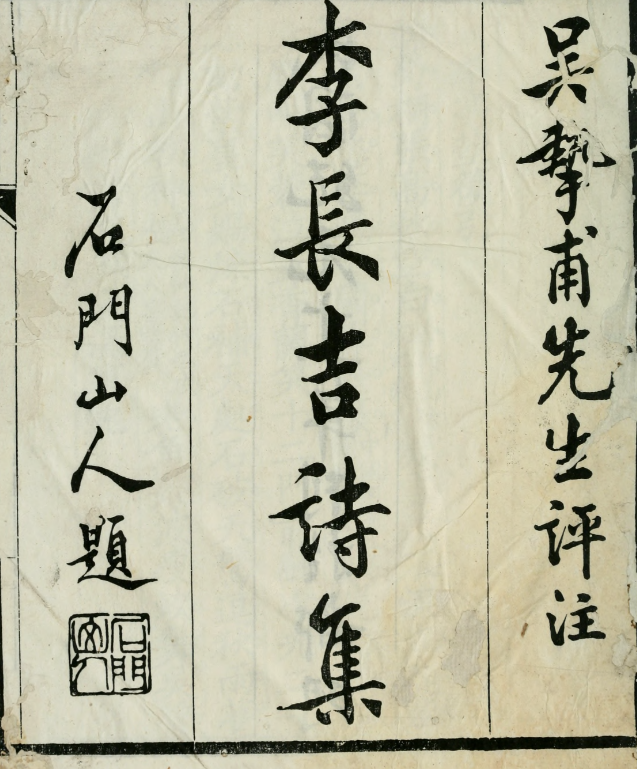 吴摯甫先生評注
李長吉詩集
石門山人題
石門